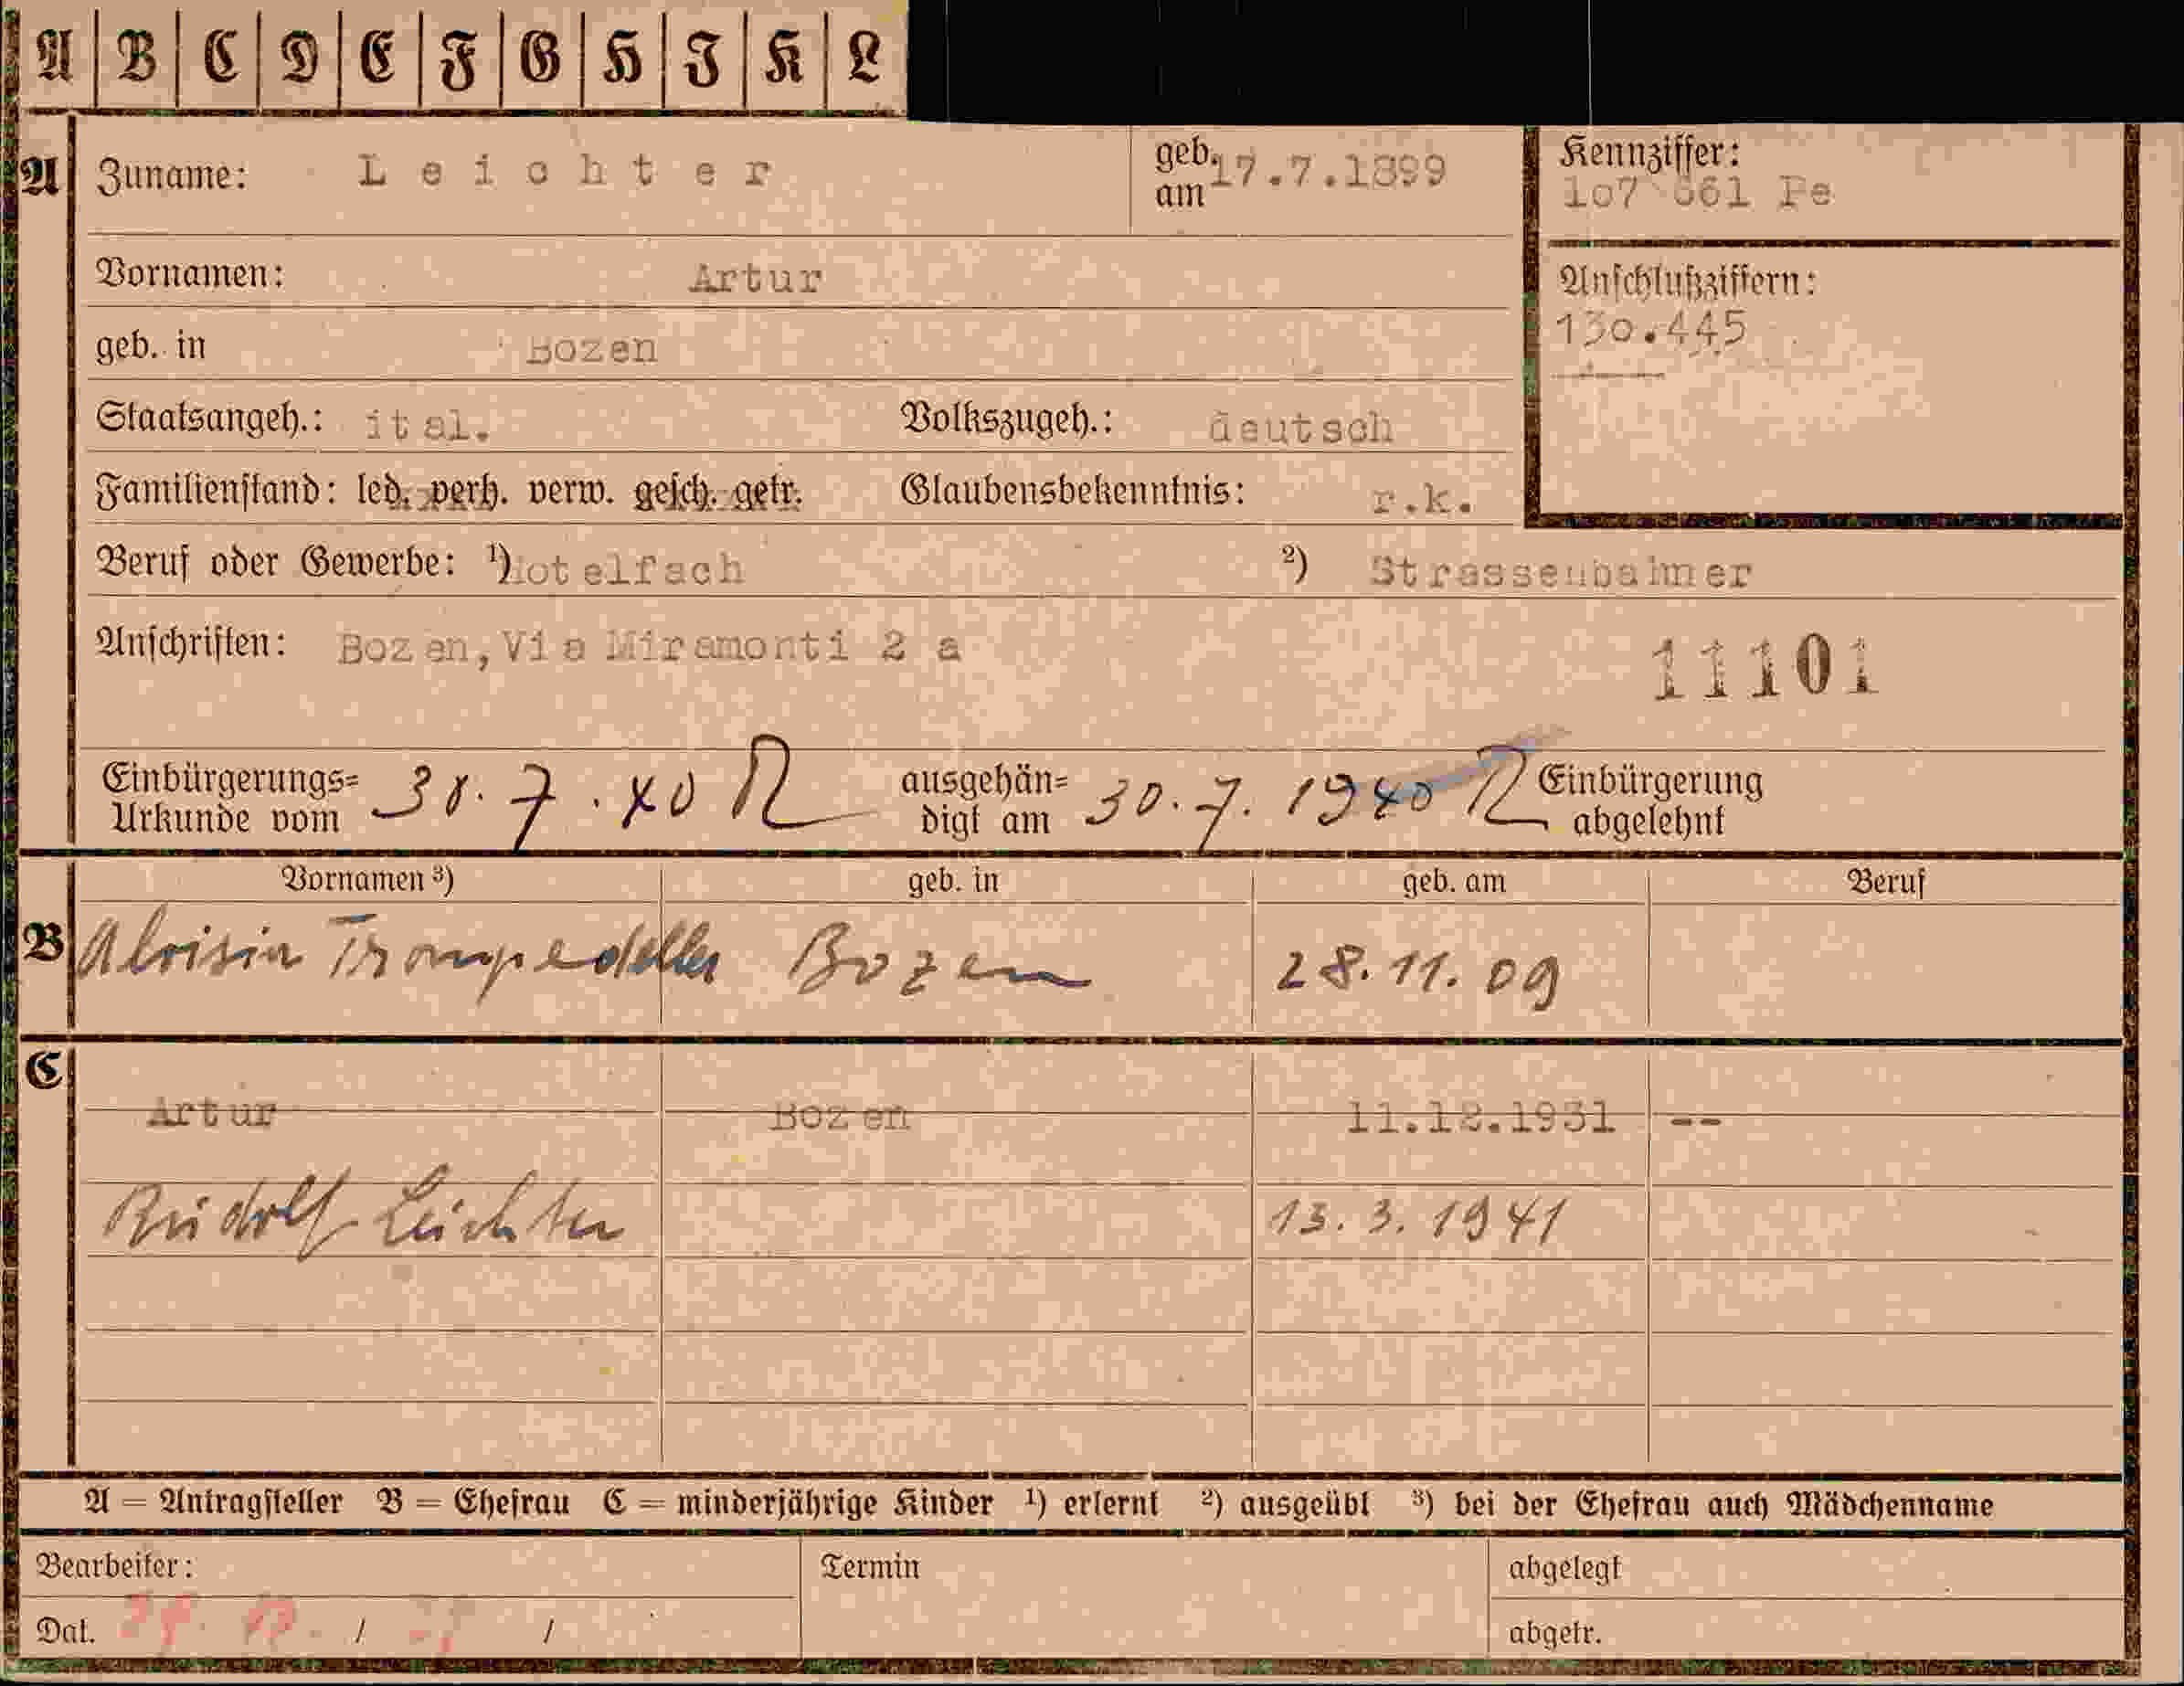 A B C D E F G H I K L
A Zuname: Leichter geb. am 17.7.1899
Kennziffer:
107 661 Pe
Vornamen: Artur
Anschlußziffern:
130.445
geb. in Bozen
Staatsangeh.: ital. Volkszugeh.: deutsch
Familienstand: led. verh. verw. gesch. getr. Glaubensbekenntnis: r.k.
Beruf oder Gewerbe: 1) Hotelfach 2)
Anschriften: Bozen, Via Miramonti 2 a
11101
Einbürgerungs=
Urkunde vom 30.7.40
ausgehän=
digt am 30.7.1940
Einbürgerung
abgelehnt
Vornamen 3) geb. in geb. am Beruf
B Aloisia Trompedeller Bozen 28.11.09
C
Artur Bozen 11.12.1931 --
Rudolf Leichter 13.3.1941
A = Antragsteller B = Ehefrau C = minderjährige Kinder 1) erlernt 2) ausgeübt 3) bei der Ehefrau auch Mädchenname
Bearbeiter: Termin abgelegt
Dat. / / abgetr.